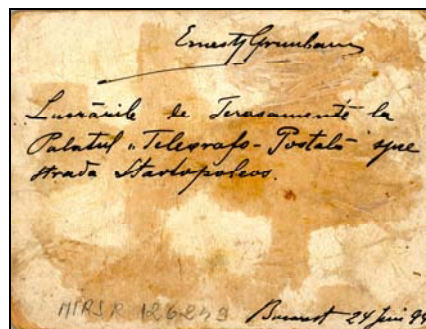 Ernest Grunbaum
Lucrările de Terasamente la
Palatul „Telegrafo-Postală" spre
strada Stavropoleos.
MIRSR 126249
Bucarest 24 Juin 94